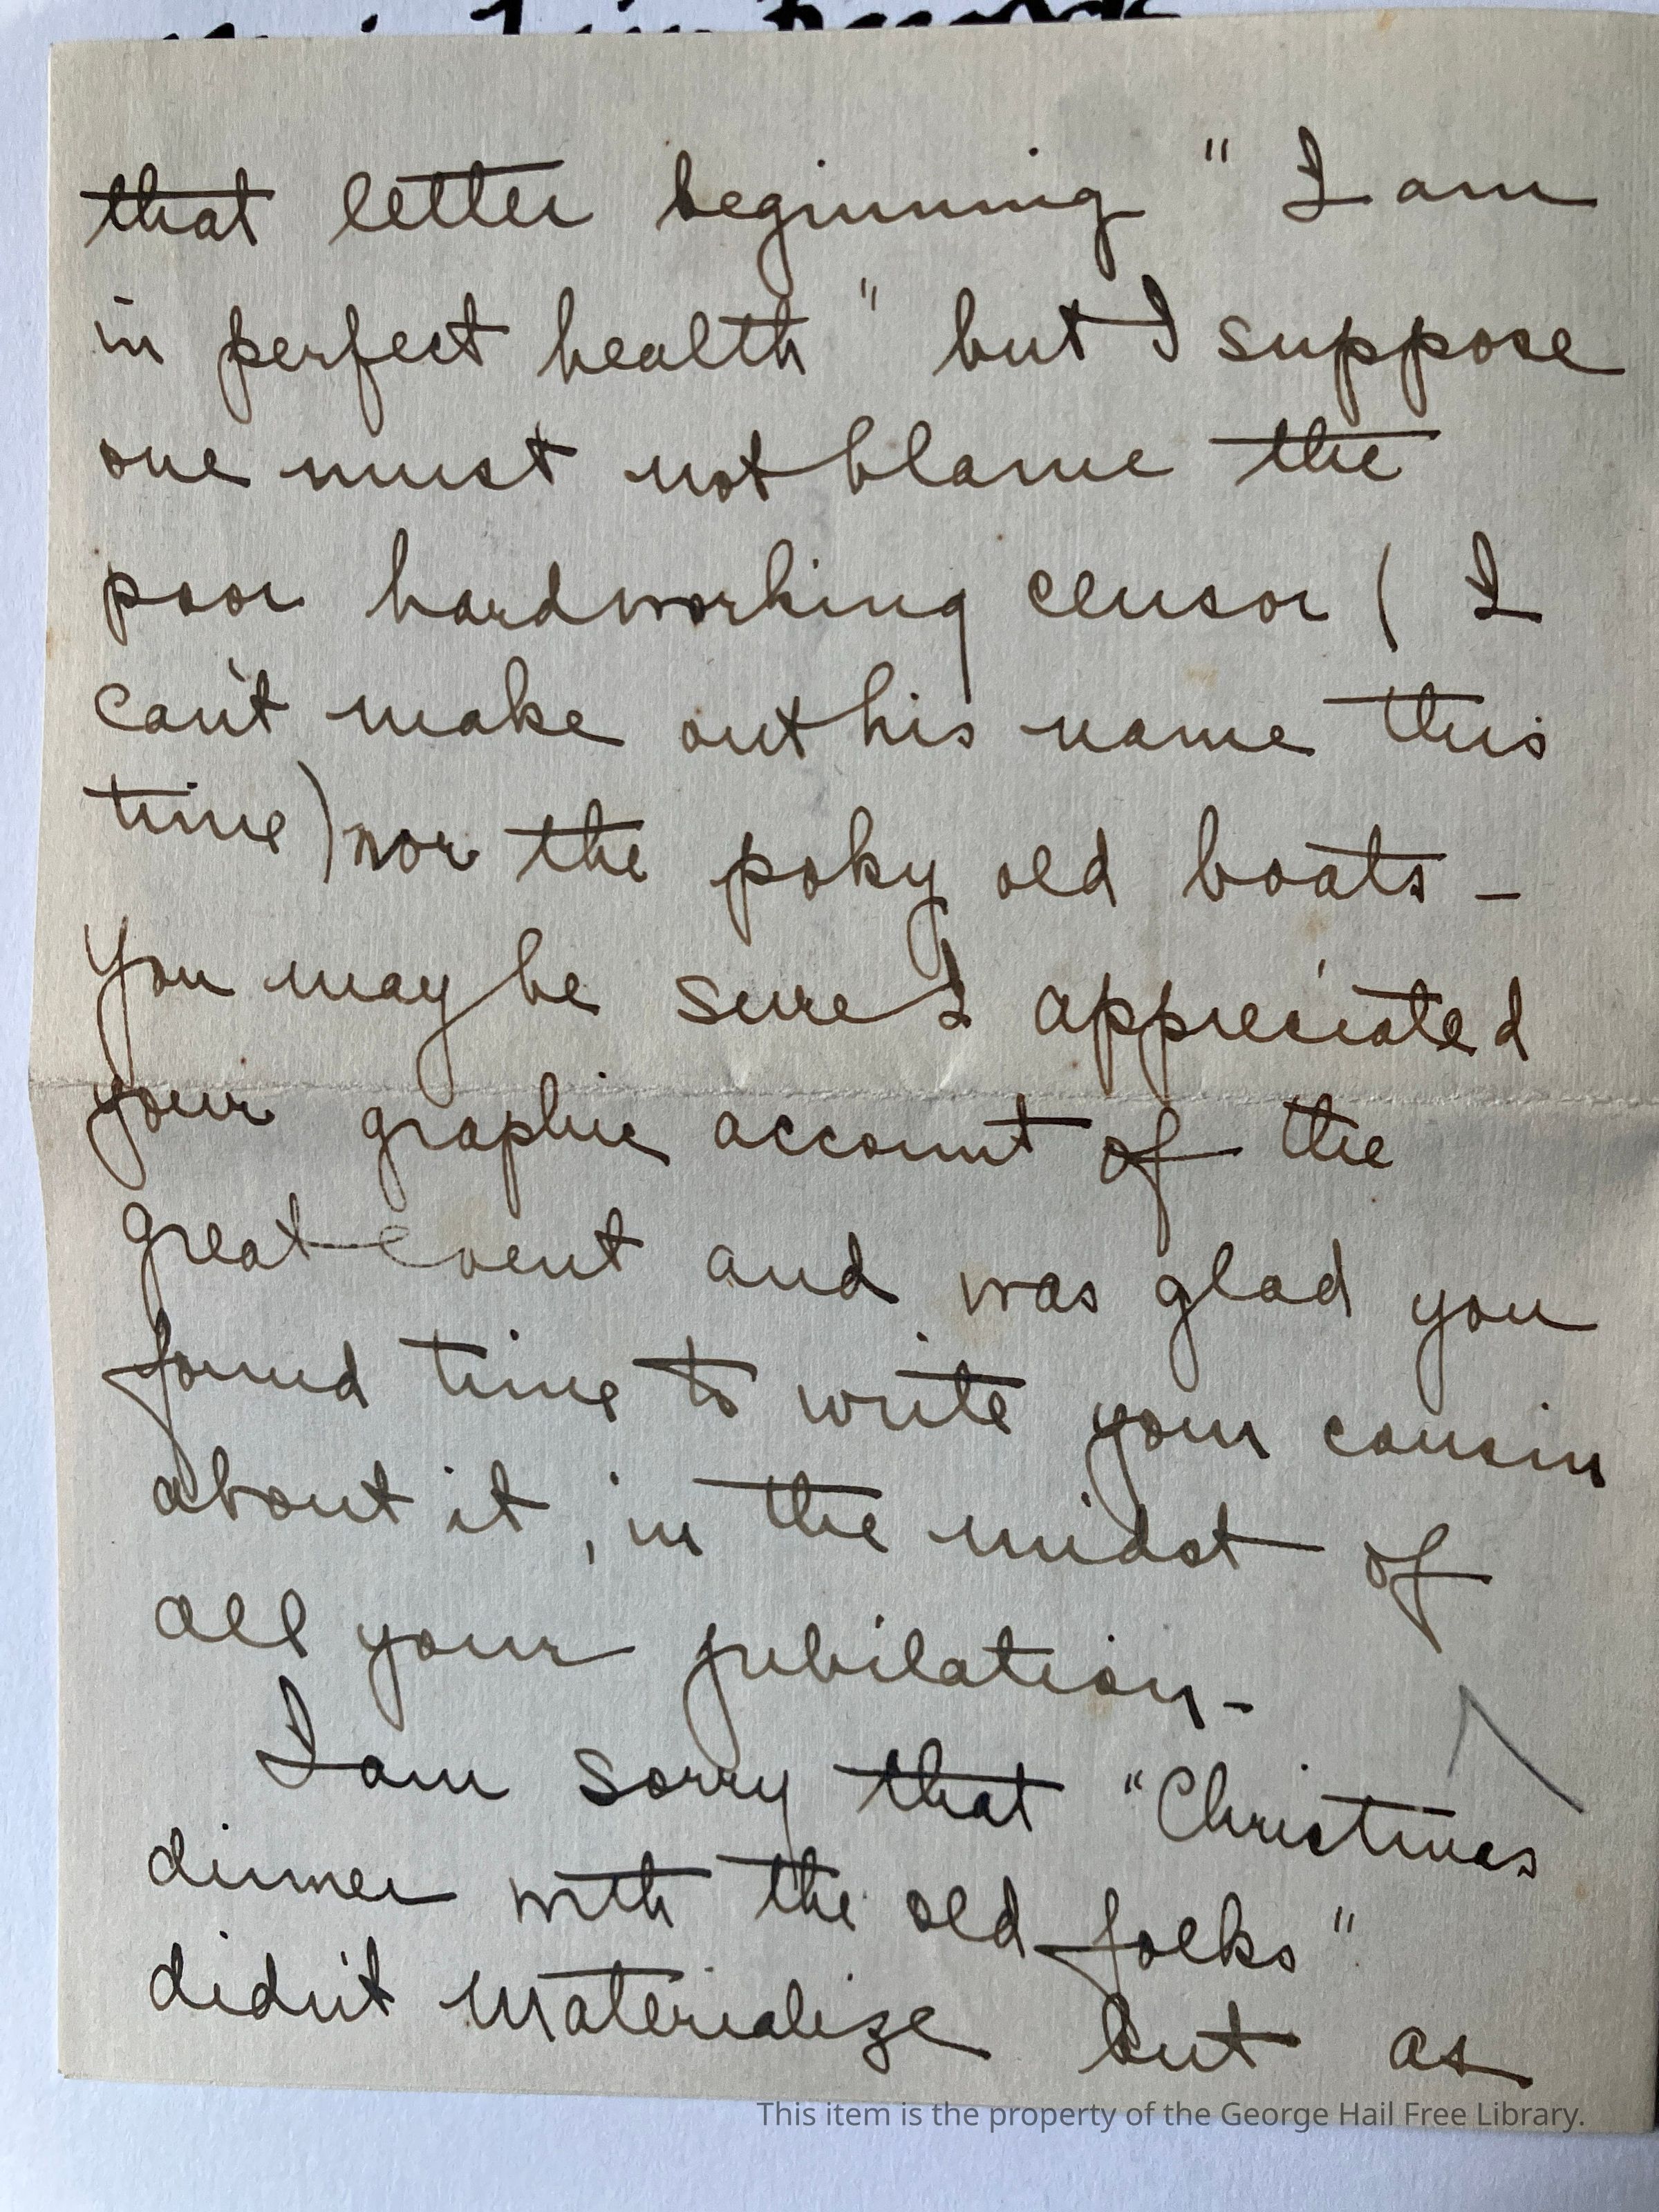 that letter beginning " I am
in perfect health " but I suppose
one must not blame the
poor hardworking censor ( I
can't make out his name this
time) nor the poky old boats –
you may be sure I appreciated
your graphic account of the
great event and was glad you
found time to write your cousin
about it, in the midst of
all your jubilation –
I am sorry that "Christmas
dinner with the old folks"
didn't materialize but as
This item is the property of the George Hail Free Library.